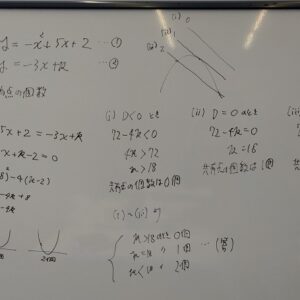 y = -x²+5x+2 …①
y = -3x+k …②
有点の個数
5x+2 = -3x+k
x+k-2=0
8)²-4(k-2)
-4k+8
-4k
2個
(i)
0
(ii) 1
(iii) 2
(i) D<0 のとき
72-4k<0
4k>72
k>18
共有点の個数は0個
(ii) D=0 のとき
72-4k=0
k=18
共有点の個数は1個
(i)~(iii) より
k>18のとき 0個
k=18 〃 1個 …(答)
k<18 〃 2個